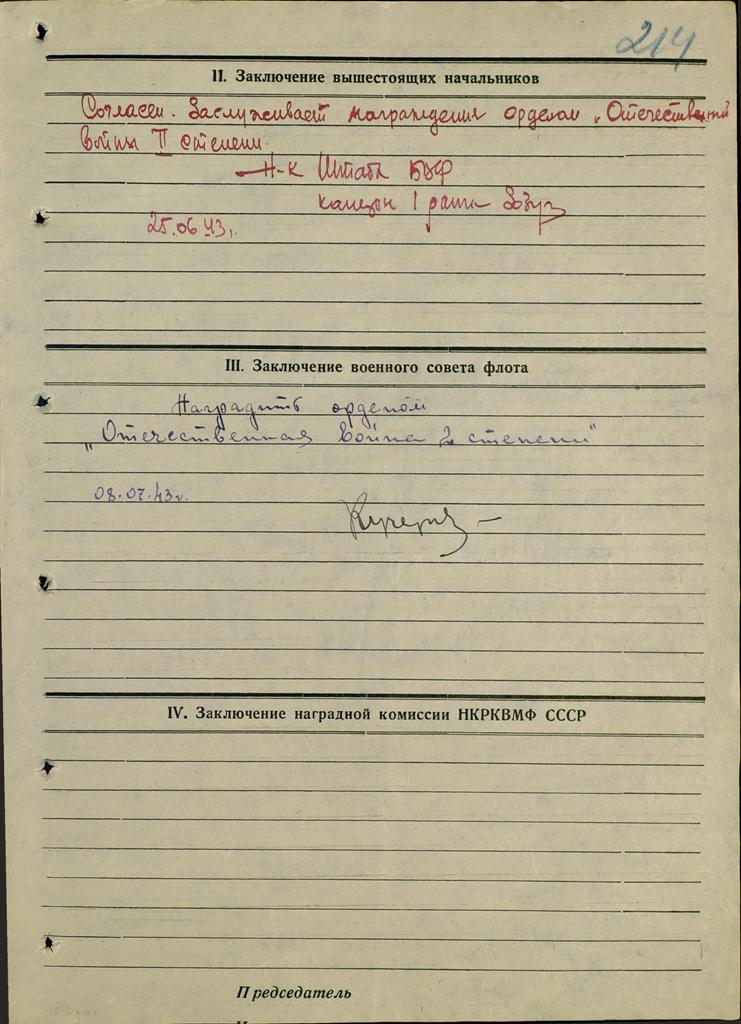 214
II. Заключение вышестоящих начальников
Согласен. Заслуживает награждения орденом „Отечественной
Войны II степени.
Н-к Штаба БВФ
капитан 1 ранга
25.06.43г.
III. Заключение военного совета флота
Наградить орденом
„Отечественная Война 2 степени"
08.07.43г.
IV. Заключение наградной комиссии НКРКВМФ СССР
Председатель